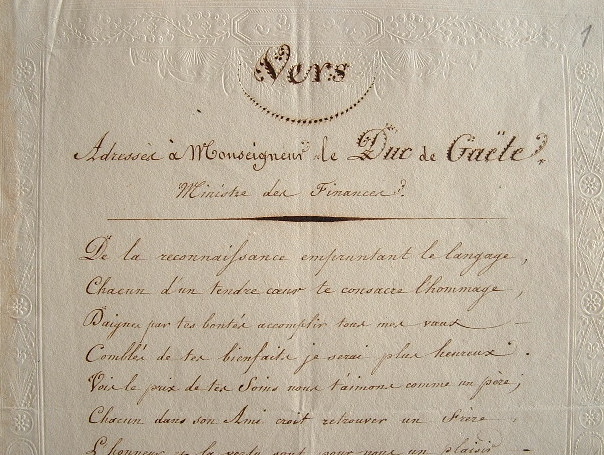 1
Vers
Adressés à Monseigneur le Duc de Gaëte.
Ministre des Finances.
De la reconnaissance empruntant le langage,
Chacun d'un tendre cœur te consacre l'hommage,
Daigne par tes bontés accomplir tous mes vœux
Comblés de tes bienfaits je serai plus heureux.
Vois le prix de tes Soins nous t'aimons comme un père;
Chacun dans son Ami croit retrouver un Frère.
L'honneur et la vertu sont pour nous un plaisir